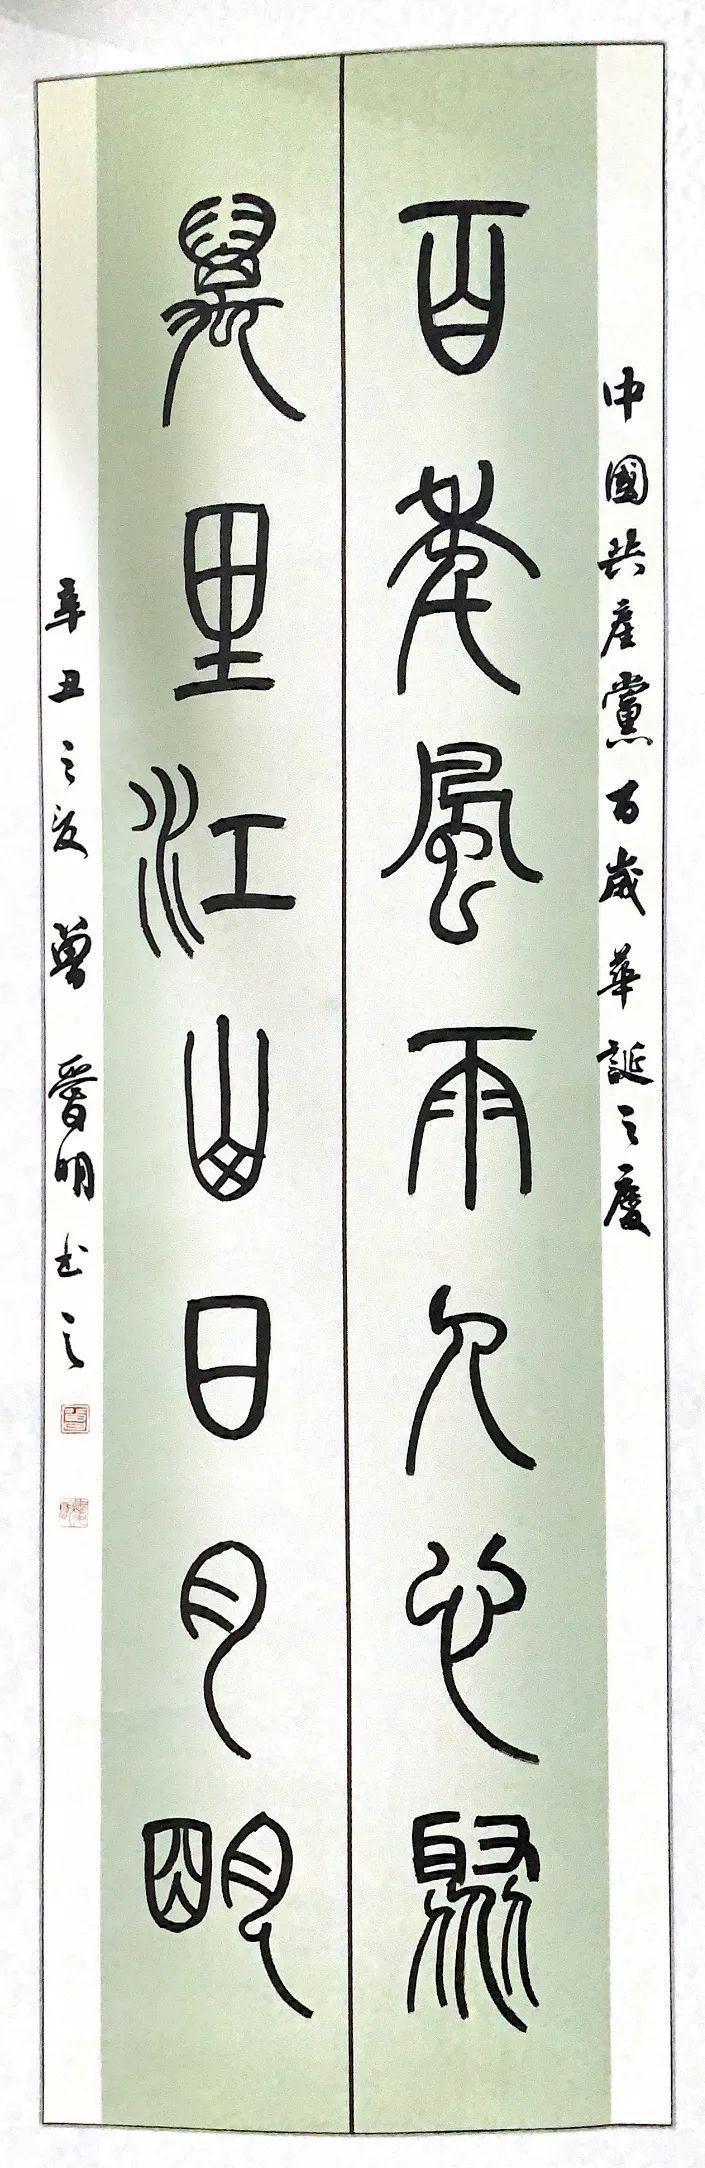 中國共產黨百歲華誕之慶
百年風雨人心聚
萬里江山日月明
辛丑之夏 曾晉明书之